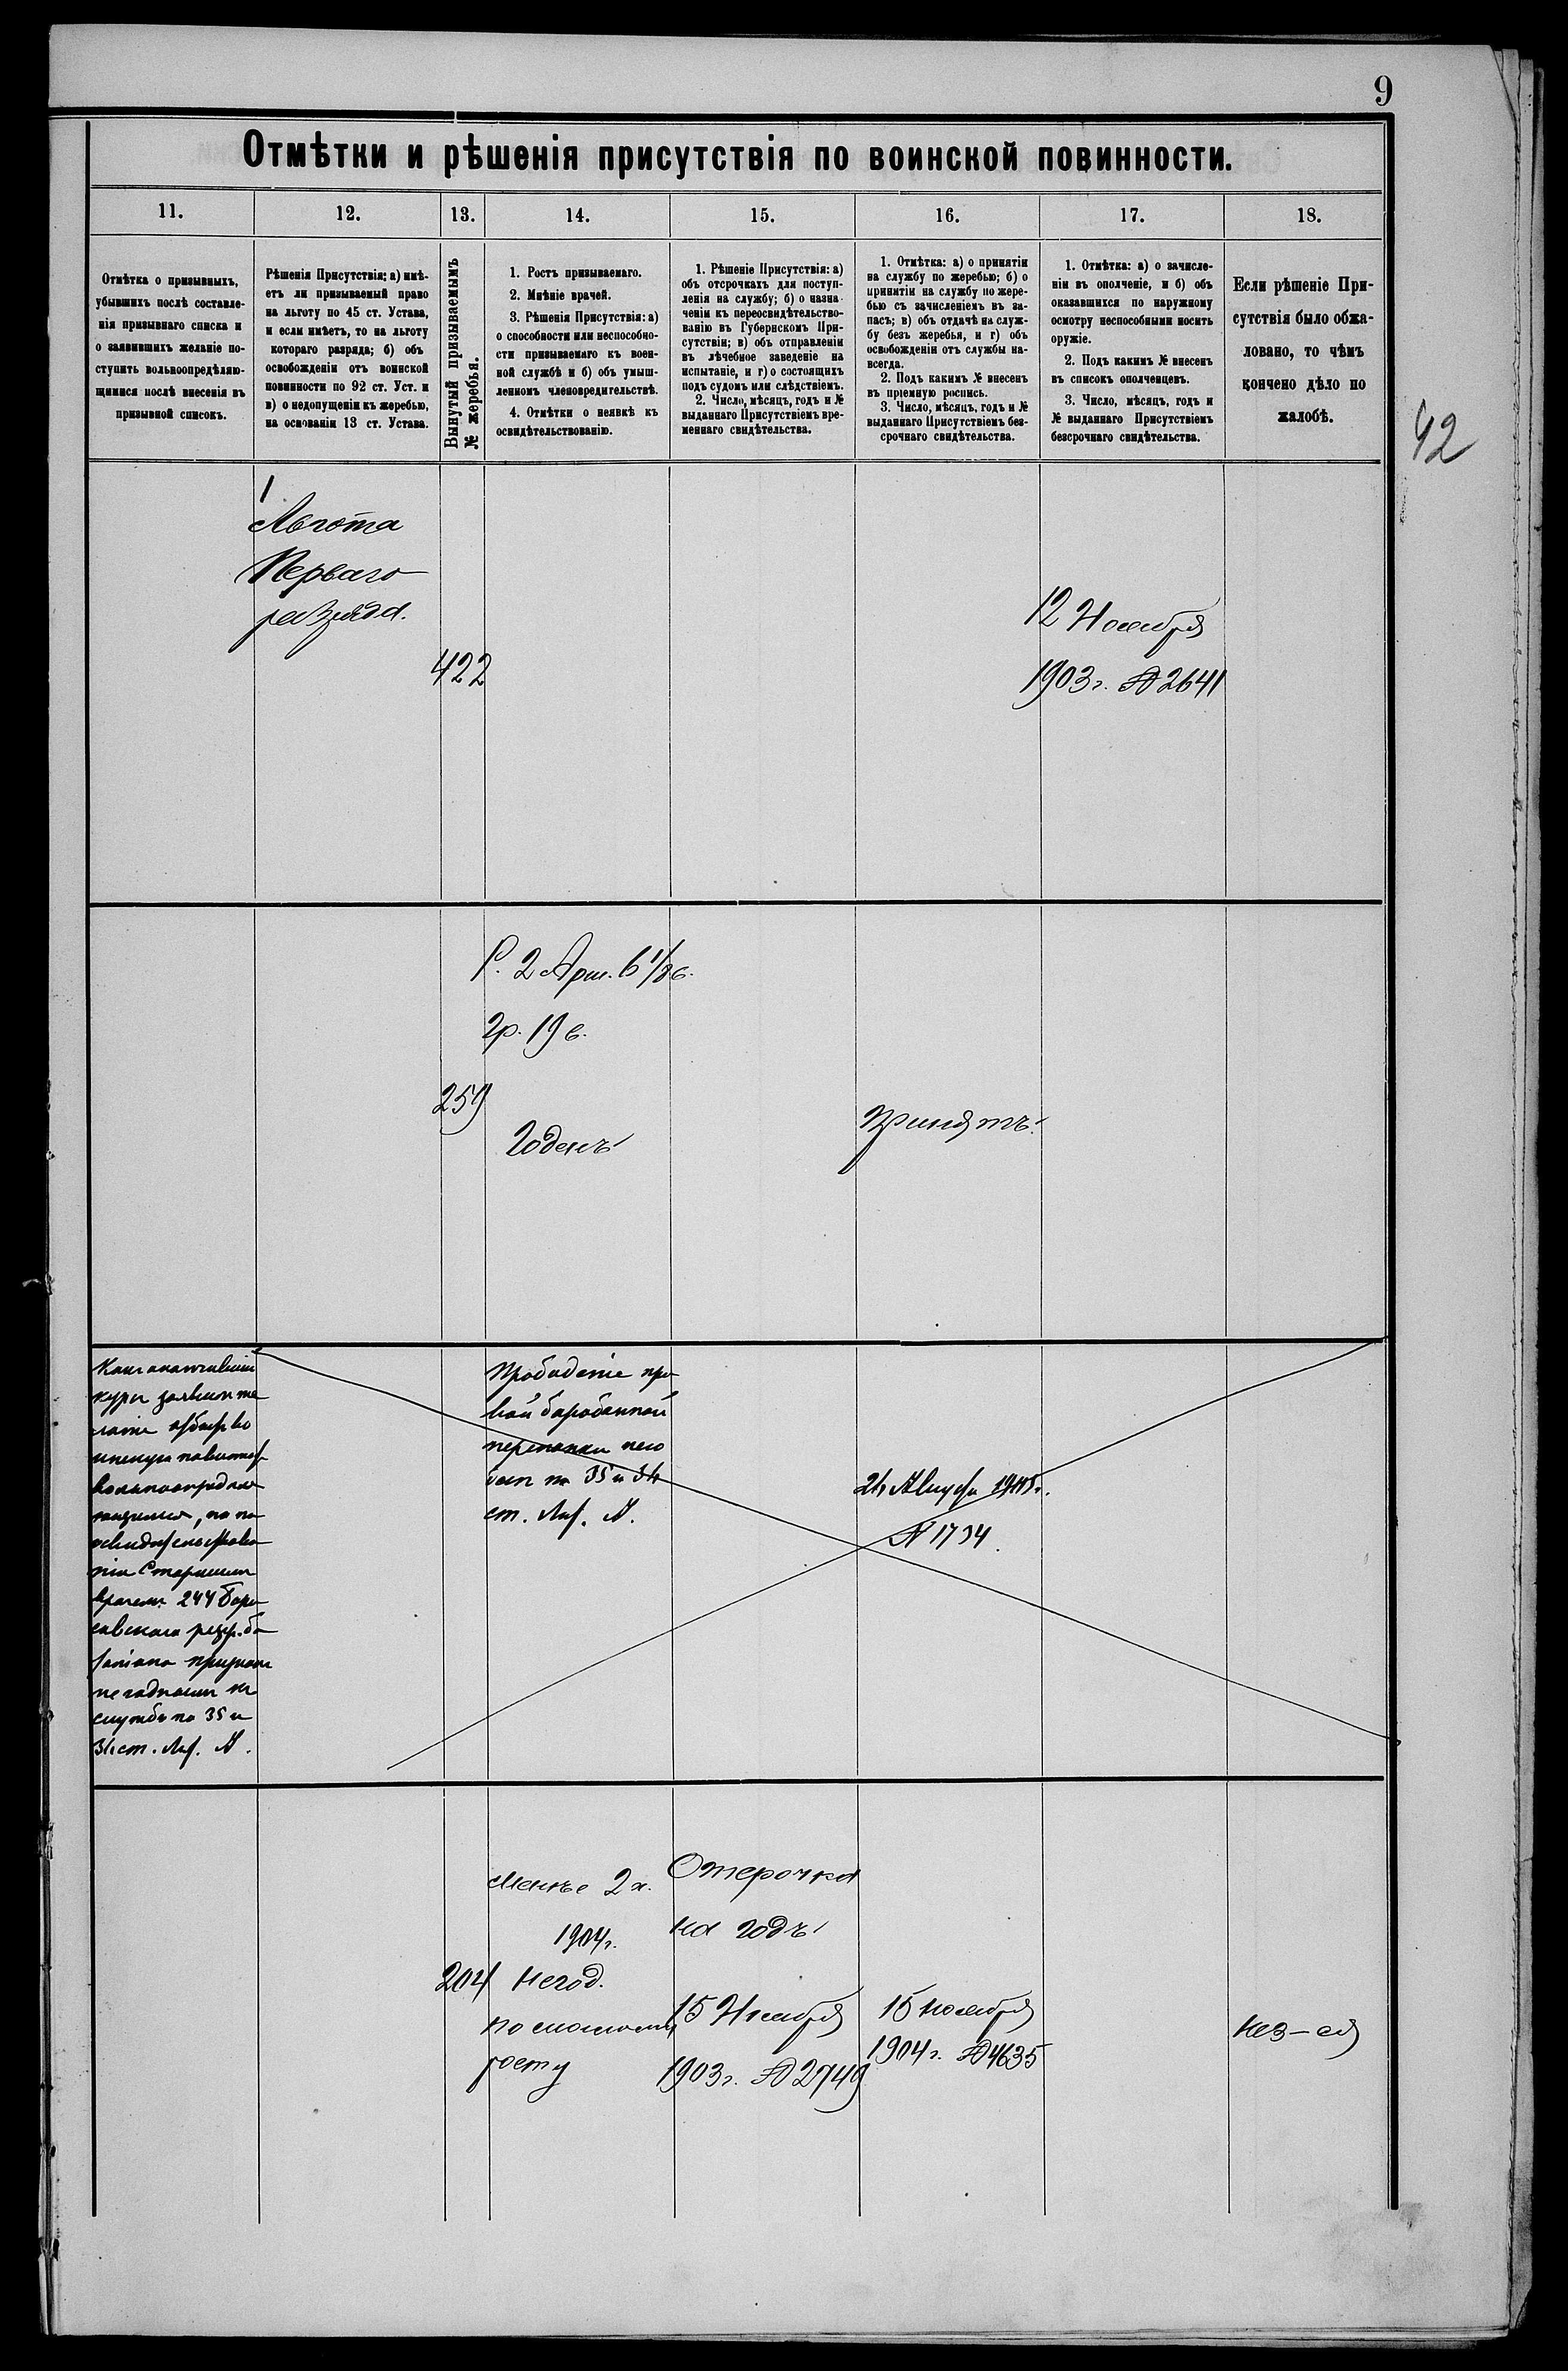 9
Отмѣтки и рѣшенія присутствія по воинской повинности.
11.
12.
13.
14.
15.
16.
17.
18.
Отмѣтка о призывныхъ,
убывшихъ послѣ составле-
нія призывнаго списка и
о заявившихъ желаніе по-
ступить вольноопредѣляю-
щимися послѣ внесенія въ
призывной списокъ.
Рѣшенія Присутствія: а) имѣ-
етъ ли призываемый право
на льготу по 45 ст. Устава,
и если имѣетъ, то на льготу
котораго разряда; б) объ
освобожденіи отъ воинской
повинности по 92 ст. Уст. и
в) о недопущеніи къ жеребью,
на основаніи 13 ст. Устава.
Вынутый призываемымъ
№ жеребья.
1. Ростъ призываемаго.
2. Мнѣніе врачей.
3. Рѣшенія Присутствія: а)
о способности или неспособно-
сти призываемаго къ воен-
ной службѣ и б) объ умыш-
ленномъ членовредительствѣ.
4. Отмѣтки о неявкѣ къ
освидѣтельствованію.
1. Рѣшеніе Присутствія: а)
объ отсрочкахъ для поступ-
ленія на службу; б) о назна-
ченіи къ переосвидѣтельство-
ванію въ Губернскомъ При-
сутствіи; в) объ отправленіи
въ лѣчебное заведеніе на
испытаніе, и г) о состоящихъ
подъ судомъ или слѣдствіемъ.
2. Число, мѣсяцъ, годъ и №
выданнаго Присутствіемъ вре-
меннаго свидѣтельства.
1. Отмѣтка: а) о принятіи
на службу по жеребью; б) о
принятіи на службу по жере-
бью съ зачисленіемъ въ за-
пасъ; в) объ отдачѣ на служ-
бу безъ жеребья, и г) объ
освобожденіи отъ службы на-
всегда.
2. Подъ какимъ № внесенъ
въ пріемную роспись.
3. Число, мѣсяцъ, годъ и №
выданнаго Присутствіемъ без-
срочнаго свидѣтельства.
1. Отмѣтка: а) о зачисле-
ніи въ ополченіе, и б) объ
оказавшихся по наружному
осмотру неспособными носить
оружіе.
2. Подъ какимъ № внесенъ
въ списокъ ополченцевъ.
3. Число, мѣсяцъ, годъ и
№ выданнаго Присутствіемъ
безсрочнаго свидѣтельства.
Если рѣшеніе При-
сутствія было обжа-
ловано, то чѣмъ
кончено дѣло по
жалобѣ.
42
1
Льгота
Перваго
разряда.
422
12 Ноября
1903 г. № 2641
Р. 2 Арш. 6 1/8 в.
гр. 19 в.
259
Годенъ
Принятъ.
курсъ
вольноопредѣля-
ющимся, по
Старшимъ
врачемъ 244 Бори-
совскаго резер. ба-
таліона признанъ
негоднымъ къ
службѣ по 35 и
34 ст. Лит. А.
Прободеніе пра-
вой барабанной
перепонки
35 и 34
ст. Лит. А.
24 Августа
№ 1734.
204
1904 г.
Негод.
по
росту
Отсрочка
на годъ
15 Ноября
1903 г. № 2749
15 Ноября
1904 г. № 4635